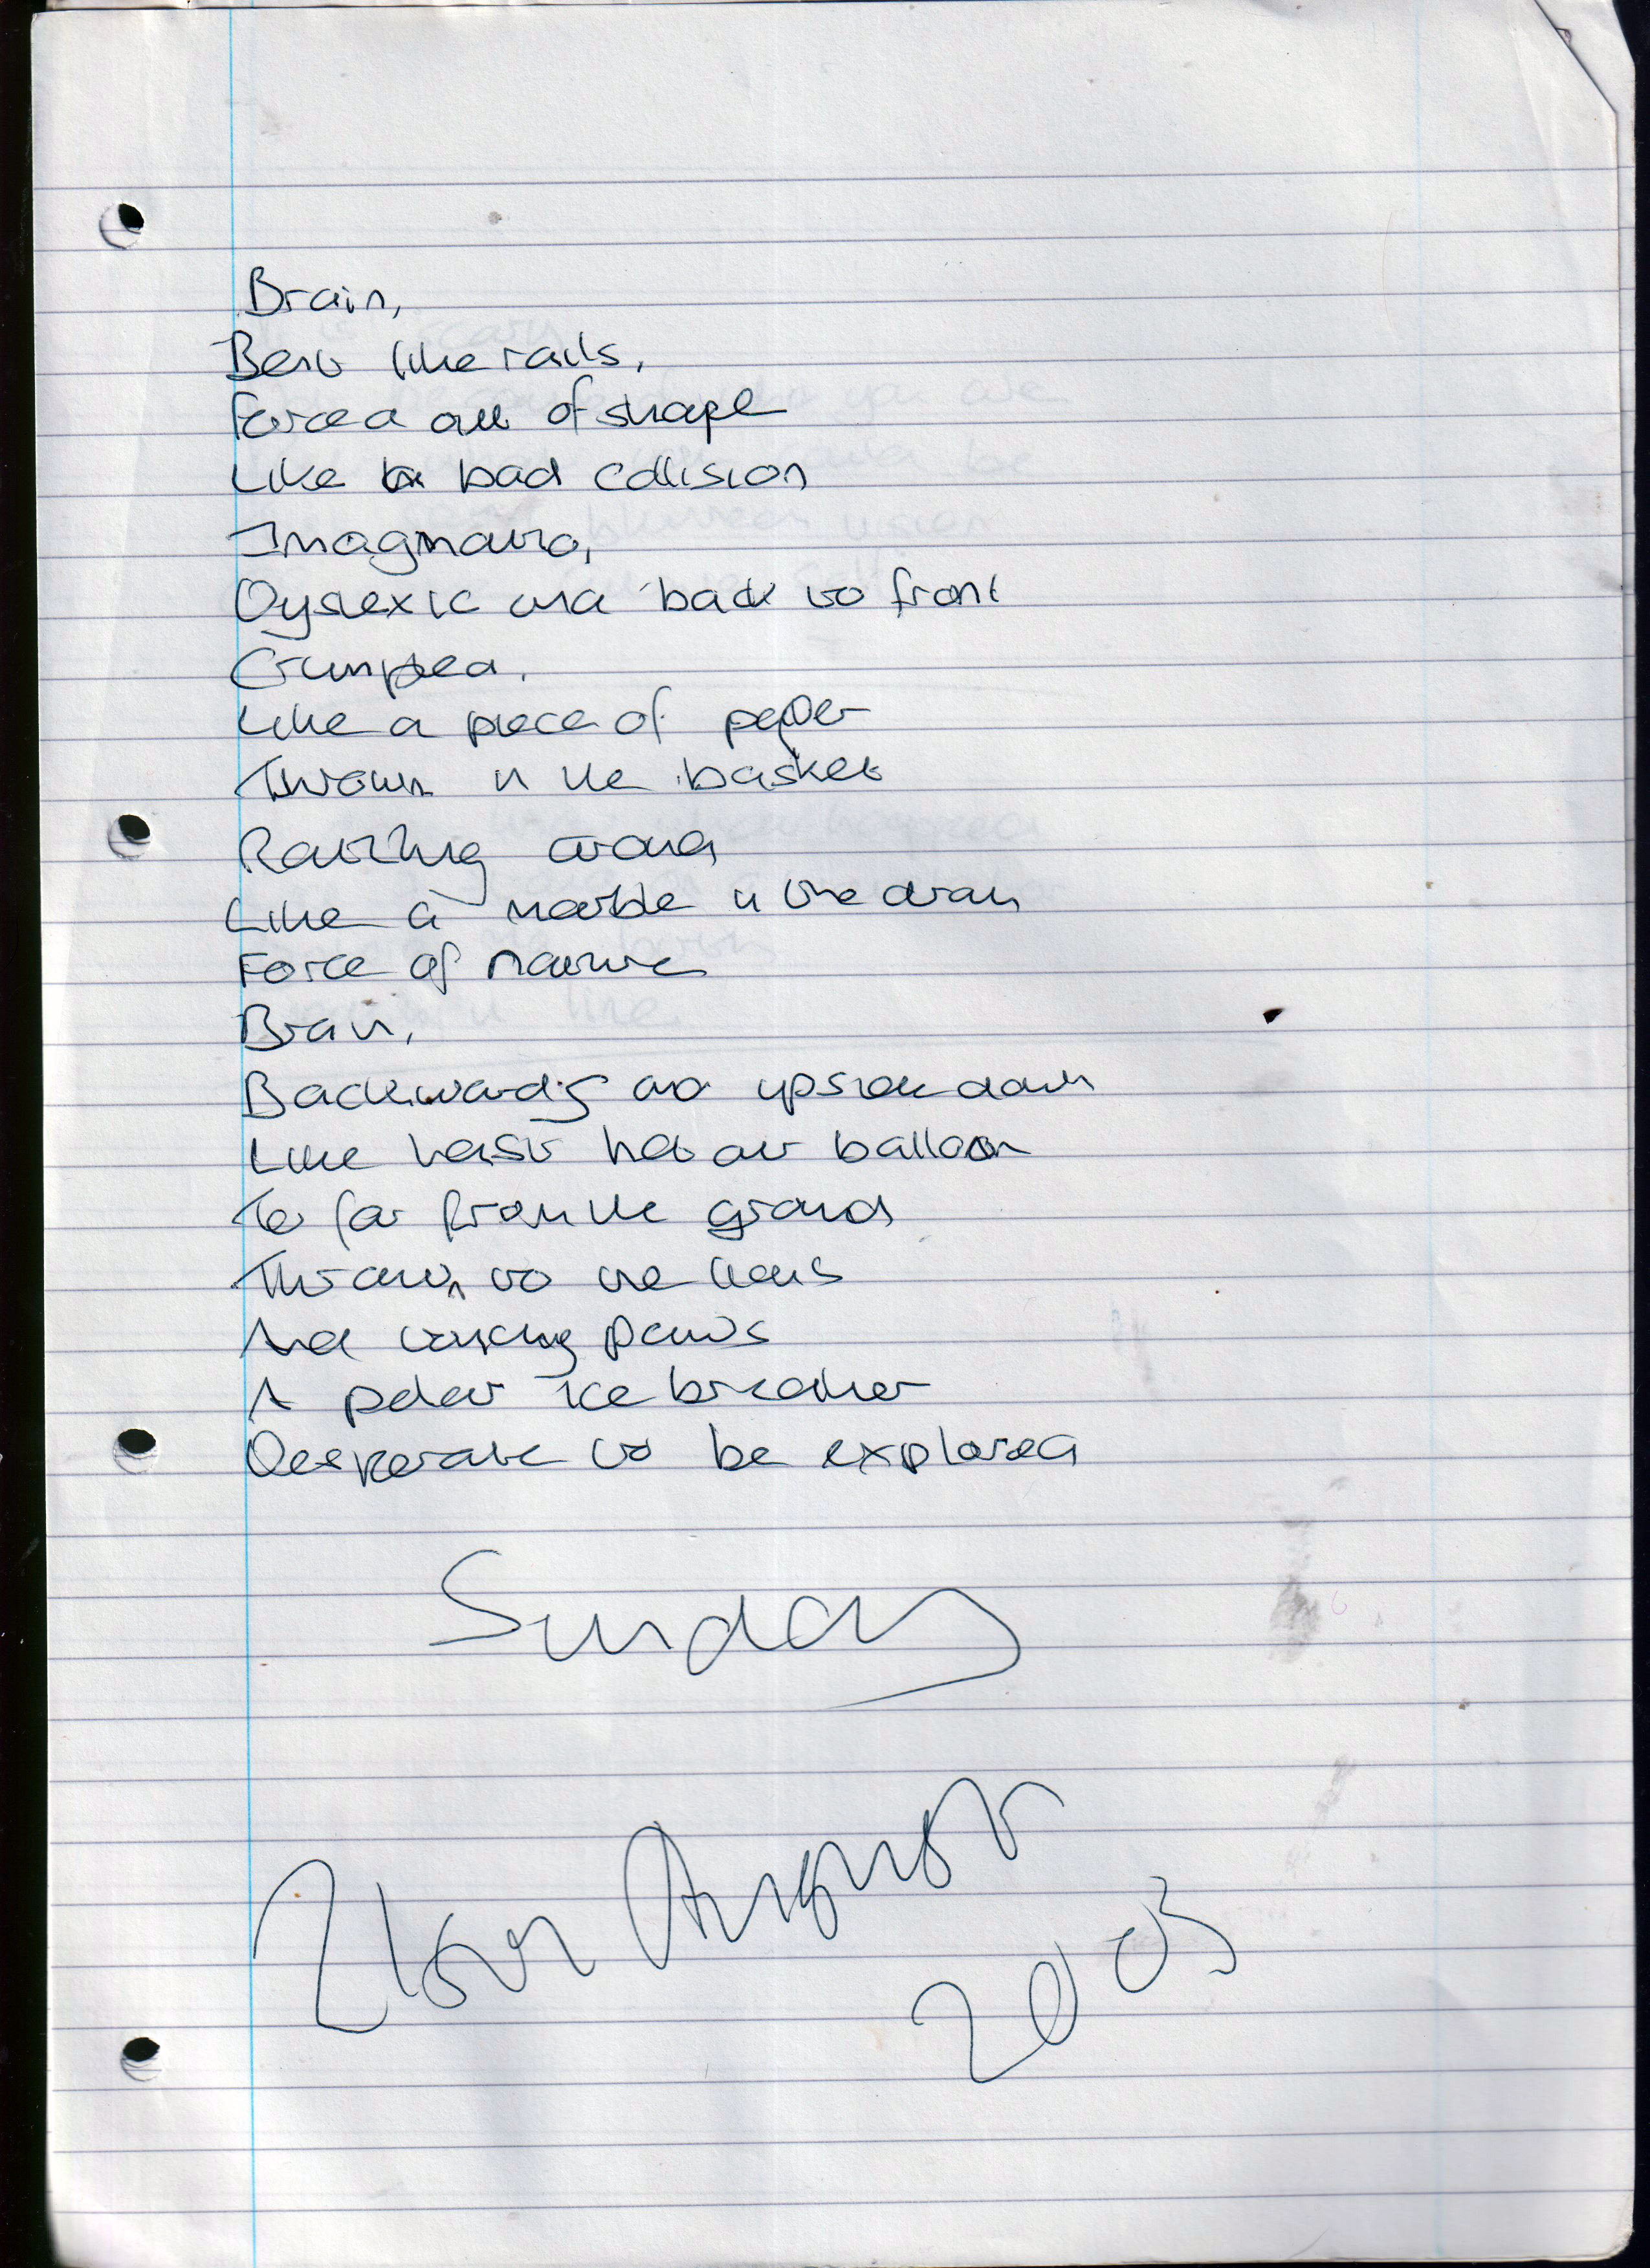 Brain,
Bent like rails,
Forced out of shape
Like a bad collision
Imagnato,
Dyslexic and back to front
Crumpled,
Like a piece of paper
Thrown in the basket
Rattling around
Like a marble in the drain
Force of nature
Brain,
Backwards and upside down
Like hot air balloon
To far from the ground
Thrown to the lions
And paws
A polar ice breaker
Desperate to be explored
Sunday
21st August
2005